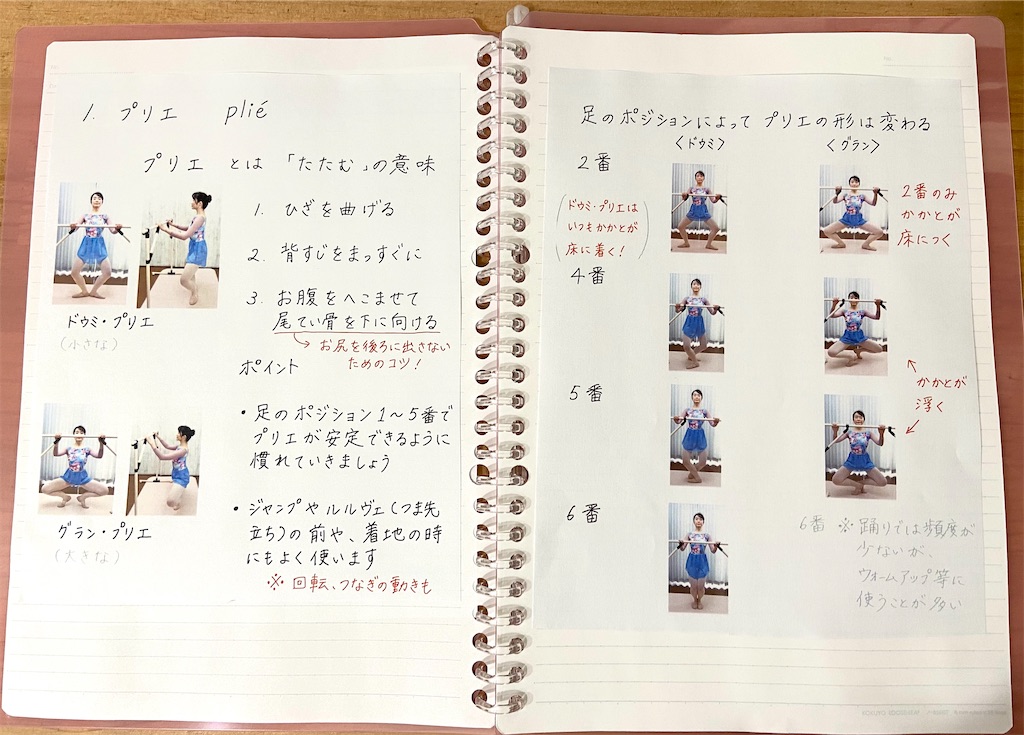 1. プリエ plié
プリエ とは 「たたむ」の意味
1. ひざを曲げる
2. 背すじをまっすぐに
3. お腹をへこませて
尾てい骨を下に向ける
お尻を後ろに出さない
ためのコツ!
ドゥミ・プリエ
(小さな)
ポイント
・足のポジション1〜5番で
プリエが安定できるように
慣れていきましょう
グラン・プリエ
(大きな)
・ジャンプやルルヴェ(つま先
立ち)の前や、着地の時
にもよく使います
※ 回転、つなぎの動きも
足のポジションによって プリエの形は変わる
〈ドゥミ〉 〈グラン〉
2番
(ドゥミ・プリエは
いつもかかとが
床に着く!)
2番のみ
かかとが
床につく
4番
かかとが
浮く
5番
6番
6番 ※ 踊りでは頻度が
少ないが、
ウォームアップ等に
使うことが多い